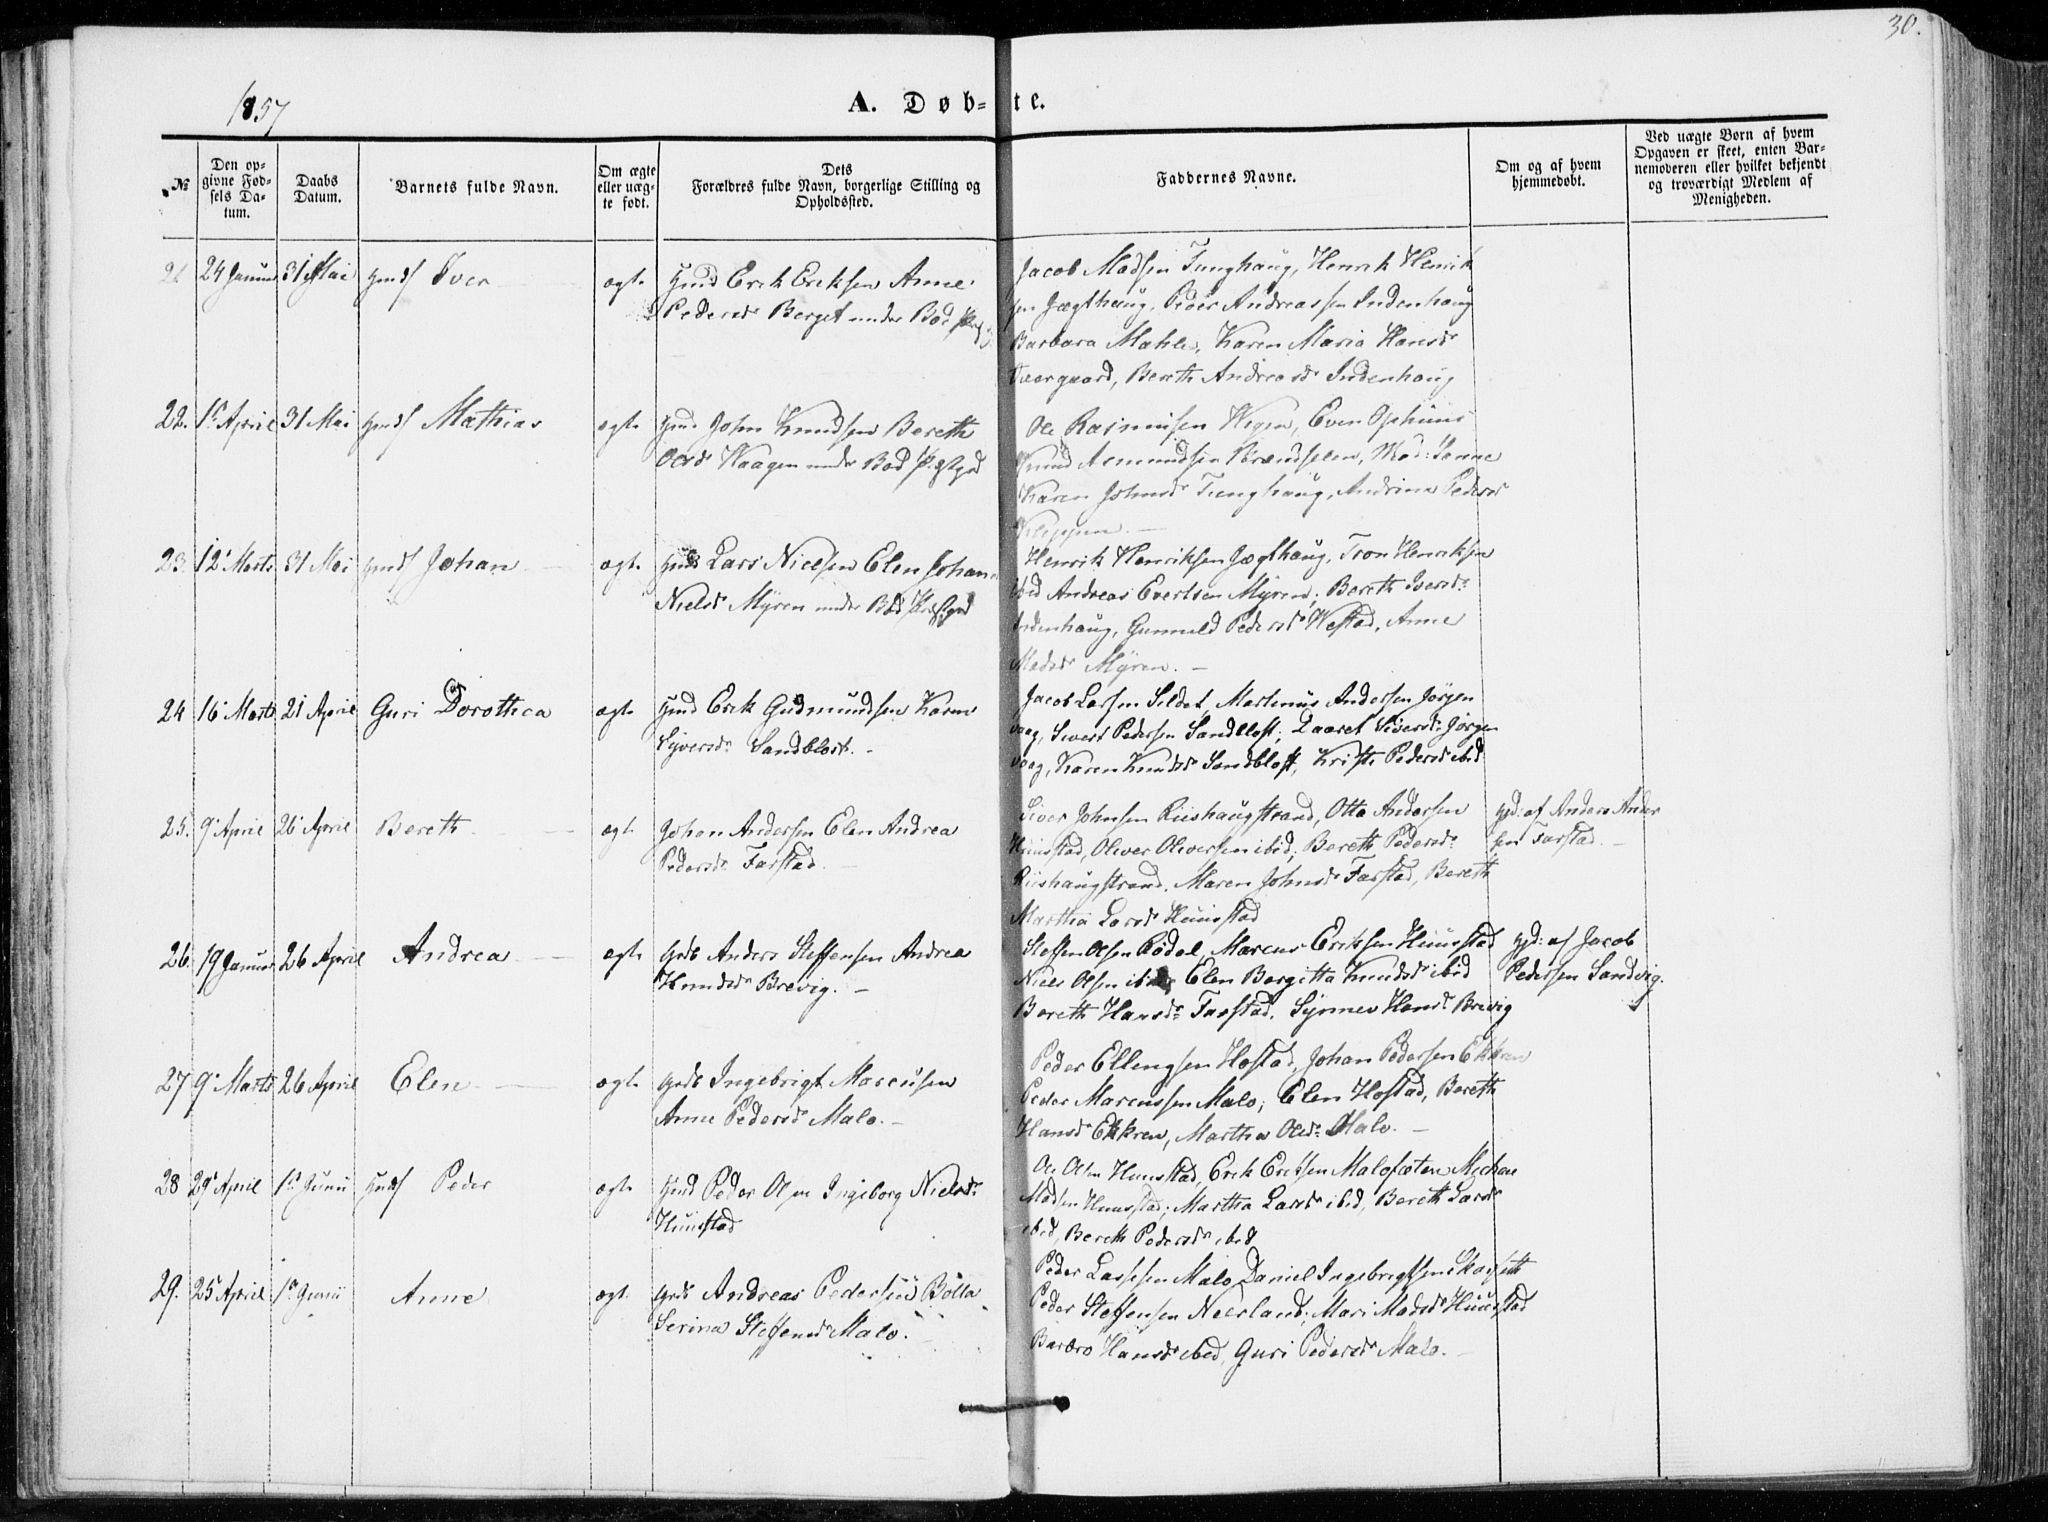 30.
1857
A. Døb-te.
№
Den opgivne Fødsels Datum.
Daabs Datum.
Barnets fulde Navn.
Om ægte eller uægte født.
Dets Forældres fulde Navn, borgerlige Stilling og Opholdssted.
Faddernes Navne.
Om og af hvem hjemmedøbt.
Ved uægte Børn af hvem Opgaven er skeet, enten Barnemoderen eller hvilket bekjendt og troværdigt Medlem af Menigheden.
21 24 Januar 31 Mai Iver ægte Erik Eriksen Anne
Pedersd. Berget under Bod
Jacob Madsen Tunghaug, Henrik Henrik
sen Jægthaug, Peder Andreassen Indenhaug
Barbara Mahle, Karen Maria Hansd.
Bereth Andreasd. Indenhaug
22. 1 April 31 Mai Mathias ægte John Knudsen Bereth
Olsd. Vaagen under Bod Præstgrd
Ole Rasmusen Vigen, Even Ophuus
Knud Asmundsen
Karen Johnsd. Tunghaug, Andrina Pedersd.
Klippen. —
23. 12 Marts 31 Mai Johan ægte Lars Nielsen Elen Johan
Nielsd. Myren under Bod Præstgrd
Henrik Henriksen Jægthaug, Tron Henriksen
ibid Andreas Evertsen Myren; Bereth Iversd.
Indenhaug, Gunnild Pedersd. Westad, Anne
Madsd. Myren. —
24 16 Marts 21 April Guri Dorothea ægte Erik Gudmundsen Karen
Syversd. Sandblost. —
Jacob Larsen Sildet, Martinus Andersen Jørgen
vaag, Sivert Pedersen Sandblost; Sivertsd. Jørgen
vaag, Karen Knudsd. Sandblost, Pedersd. ibid
25. 9 April 26 April Bereth ægte Johan Andersen Elen Andrea
Pedersd. Farstad. —
Siver Johnsen Riishaugstrand, Otto Andersen
Huustad, Oliver Oliversen ibid; Bereth Pedersd.
Riishaugstrand. Maren Johnsd. Farstad, Bereth
Martha Larsd. Huustad
gd: af Anders Ander
sen Farstad. —
26 19 Januar 26 April Andrea ægte Anders Steffensen Andrea
Knudsd. Brevig. —
Steffen Olsen Rødal, Marcus Eriksen Huustad
Niels Olsen ibid; Elen Bergitta Knudsd. ibid
Bereth Hansd. Farstad, Synnev Hansd. Brevig
gd: af Jacob
Pedersen Sandvig.
27 9 Marts 26 April Elen ægte Ingebrigt Marcusen
Anne Pedersd. Malo. —
Peder Ellingsen Hostad, Johan Pedersen Ekkren
Peder Marcussen Malo; Elen Hostad, Bereth
Hansd. Ekkren, Martha Olsd. Malo. —
28 29 April 1 Junii Peder ægte Peder Olsen Ingeborg Nielsd.
Huustad
Ole Olsen Huustad, Erik Eriksen Malefæten
Madsen Huustad; Martha Larsd. ibid, Bereth Larsd.
ibid, Bereth Pedersd. ibid
29. 25 April 1 Junii Anne ægte Andreas Pedersen
Serina Steffensd. Malo.
Peder Lassesen Malo, Daniel Ingebrigtsen Skarseth
Peder Steffensen Neerland; Mari Madsd. Huustad
Barbro Hansd. ibid, Guri Pedersd. Malo. —